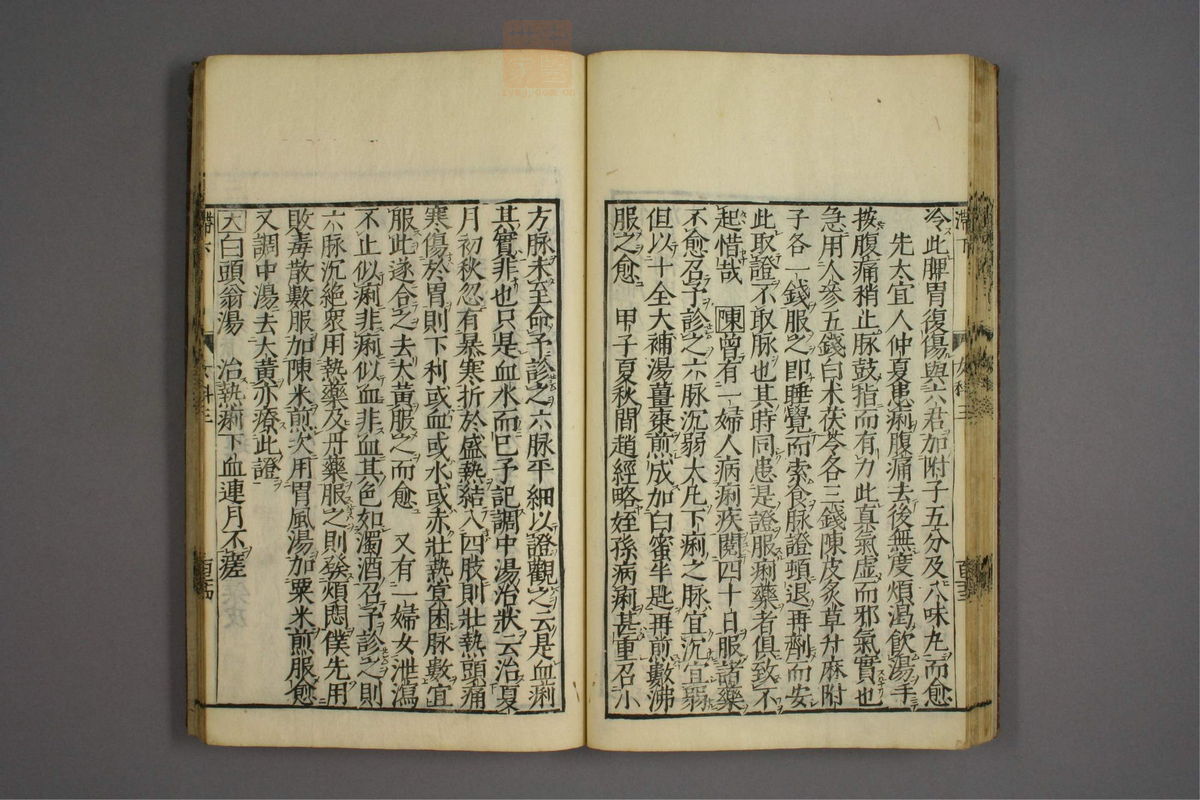 冷此脾胃復傷與六君加附子五分及八味丸而愈
先太宜人仲夏患痢腹痛去後無度煩渴飲湯手
按腹痛稍止脉鼓指而有力此真氣虛而邪氣實也
急用人參五錢白术茯苓各三錢陳皮炙草升麻附
子各一錢服之即睡覺而索食脉證頓退再劑而安
此取證不取脉也其時同患是證服痢藥者俱致不
起惜哉 陳曾有一婦人病痢疾閱四十日服諸藥
不愈召予診之六脉沉弱太凡下痢之脉宜沉宜弱
但以十全大補湯薑棗煎成加白蜜半匙再煎數沸
服之愈 甲子夏秋間趙經略姪孫病痢甚重召小
方脉未至命予診之六脉平細以證觀之云是血痢
其實非也只是血水而已予記調中湯治狀云治夏
月初秋忽有暴寒折於盛熱結入四肢則壯熱頭痛
寒傷於胃則下利或血或水或赤壯熱寞困脉數宜
服此遂合之去大黃服之而愈 又有一婦女泄瀉
不止似痢非痢似血非血其色如濁酒召予診之則
六脉沉絕眾用熱藥及丹藥服之則發煩悶僕先用
敗毒散數服加陳米煎次用胃風湯加粟米煎服愈
又調中湯去大黃亦療此證
大白頭翁湯 治熱痢下血連月不瘥
帶下
女科三